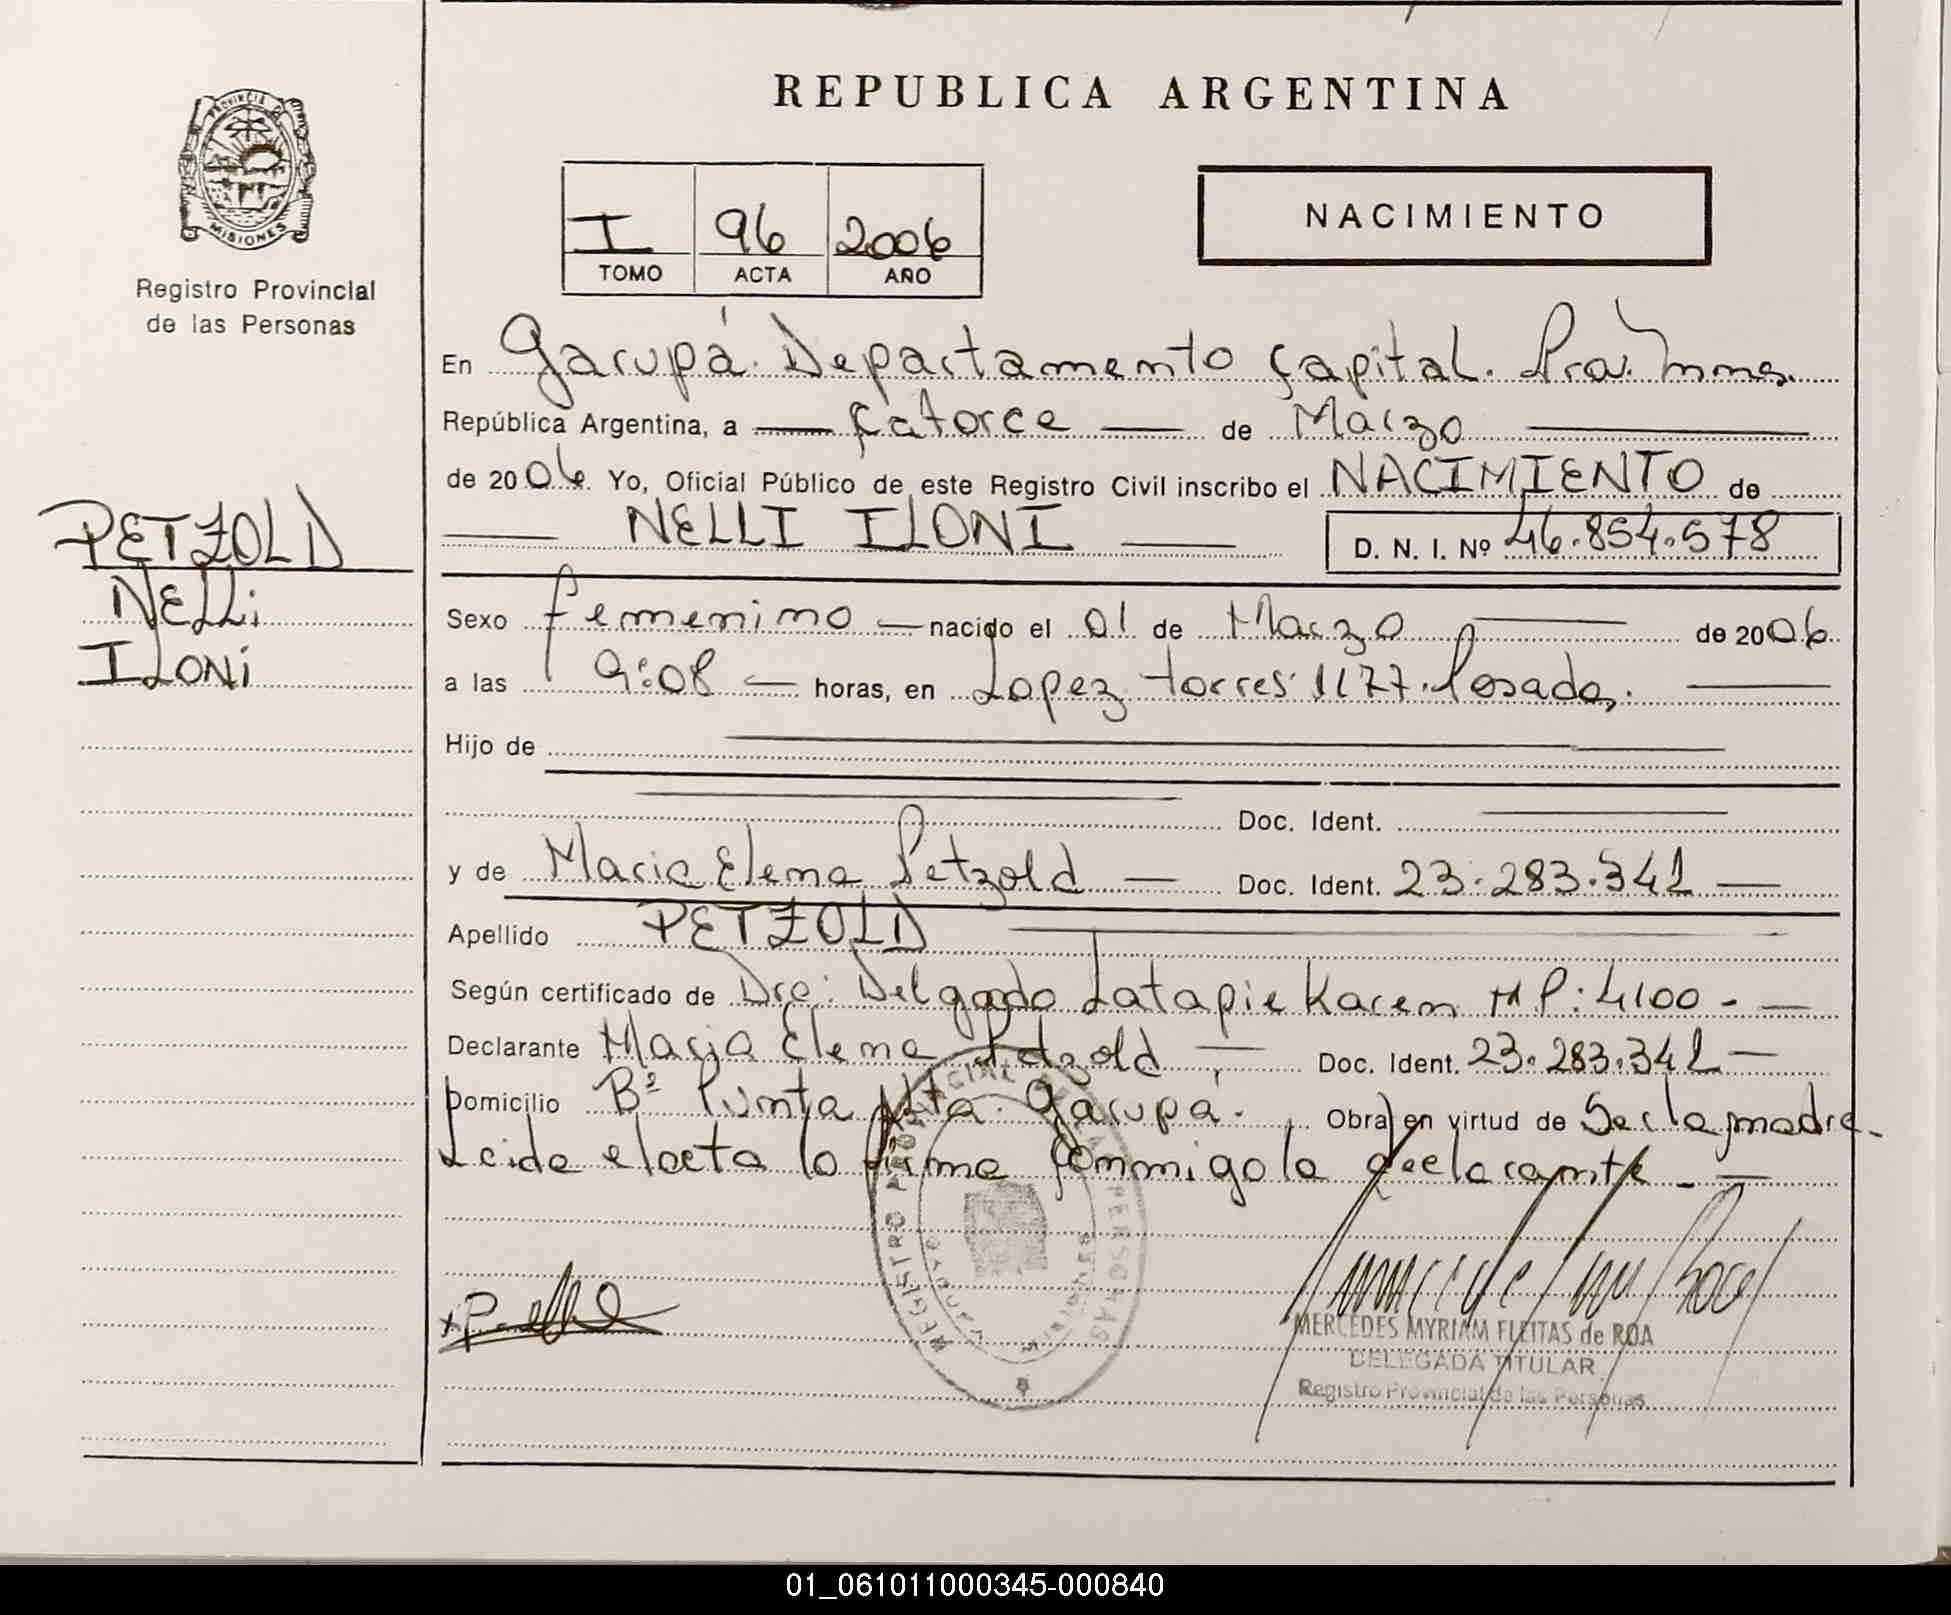 REPUBLICA ARGENTINA
PROVINCIA DE
MISIONES
Registro Provincial
de las Personas
I 96 2006
TOMO ACTA AÑO
NACIMIENTO
En Garupá. Departamento Capital. Pcia. Mnes.
República Argentina, a — Catorce — de Marzo —
de 2006. Yo, Oficial Público de este Registro Civil inscribo el NACIMIENTO de
— NELLI ILONI — D. N. I. Nº 46.854.578
PETZOLD
NELLi
ILONi
Sexo femenino — nacido el 01 de Marzo — de 2006.
a las 9:08 — horas, en Lopez torres 1177. Posadas. —
Hijo de —
— Doc. Ident. —
y de Maria Elena Petzold — Doc. Ident. 23.283.342 —
Apellido PETZOLD —
Según certificado de Dra: Delgado Latapie Karen M P: 4100 - —
Declarante Maria Elena Petzold — Doc. Ident. 23.283.342 —
Domicilio Bº Punta Alta. Garupa. Obra en virtud de Ser la madre.
Leida el acta la firma conmigo la declarante - —
REGISTRO PROVINCIAL DE LAS PERSONAS
MERCEDES MYRIAM FLEITAS de ROA
DELEGADA TITULAR
Registro Provincial de las Personas
01_061011000345-000840